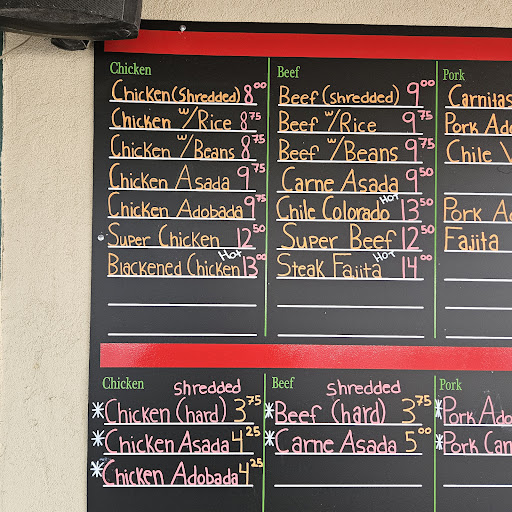 Chicken
Chicken (Shredded) 8.00
Chicken w/Rice 8.75
Chicken w/Beans 8.75
Chicken Asada 9.75
Chicken Adobada 9.75
Super Chicken 12.50
Blackened Chicken Hot 13.00
Beef
Beef (Shredded) 9.00
Beef w/Rice 9.75
Beef w/Beans 9.75
Carne Asada 9.50
Chile Colorado Hot 13.50
Super Beef 12.50
Steak Fajita Hot 14.00
Pork
Carnitas
Pork Ado
Chile V
Pork A
Fajita
Chicken
Shredded
*Chicken (hard) 3.75
*Chicken Asada 4.25
*Chicken Adobada 4.25
Beef
Shredded
*Beef (hard) 3.75
*Carne Asada 5.00
Pork
*Pork Ado
*Pork Car